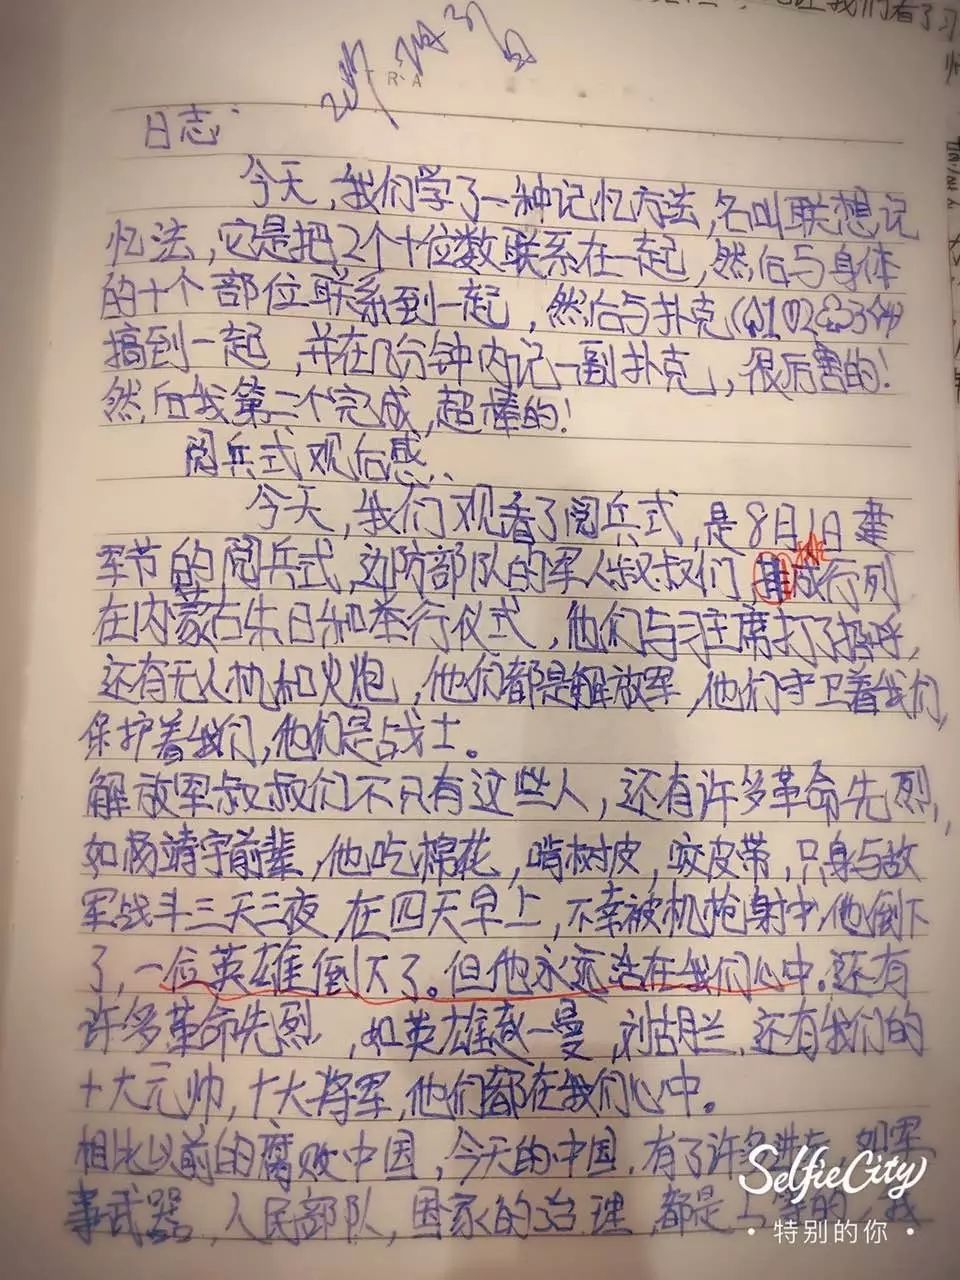 TRA
日志
今天,我们学了一种记忆方法,名叫联想记
忆法,它是把2个十位数联系在一起,然后与身体
的十个部位联系到一起,然后与扑克(♤1♡2♧3♢4)
搞到一起,并在几分钟内记一副扑克,很厉害的!
然后我第二个完成,超棒的!
阅兵式观后感
今天,我们观看了阅兵式,是8月1日建
军节的阅兵式,边防部队的军人叔叔们,排成行列
在内蒙古朱日和举行仪式,他们与习主席打了招呼,
还有无人机和火炮,他们都是解放军,他们守卫着我们,
保护着我们,他们是战士。
解放军叔叔们不只有这些人,还有许多革命先烈,
如杨靖宇前辈,他吃棉花,啃树皮,咬皮带,只身与敌
军战斗三天三夜,在四天早上,不幸被机枪射中,他倒下
了,一位英雄倒下了。但他永远活在我们心中。还有
许多革命先烈,如英雄赵一曼,刘胡兰,还有我们的
十大元帅,十大将军,他们都在我们心中。
相比以前的腐败中国,今天的中国,有了许多 如军
事武器,人民部队,国家的治理,都是上等的,我
SelfieCity
·特别的你·